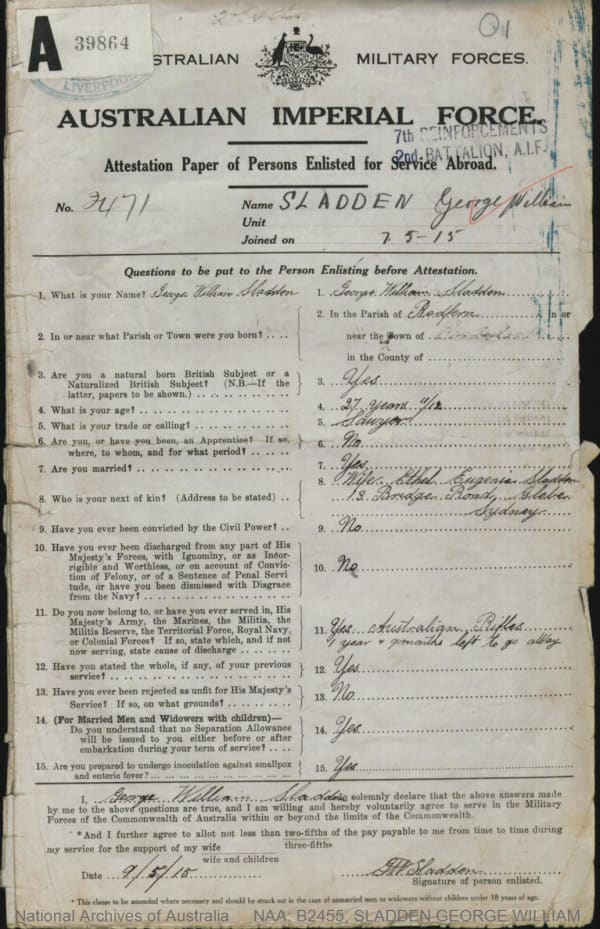 A 39864
LIVERPOOL
AUSTRALIAN MILITARY FORCES.
AUSTRALIAN IMPERIAL FORCE.
7th REINFORCEMENTS
2nd BATTALION, A.I.F.
Attestation Paper of Persons Enlisted for Service Abroad.
No. 2471 Name SLADDEN George William
Unit
Joined on 7-5-15
Questions to be put to the Person Enlisting before Attestation.
1. What is your Name? George William Sladden
1. George William Sladden
2. In or near what Parish or Town were you born?
2. In the Parish of Redfern in or
near the Town of
in the County of
3. Are you a natural born British Subject or a
Naturalized British Subject? (N.B.—If the
latter, papers to be shown.)
3. Yes
4. What is your age?
4. 27 years 4/12
5. What is your trade or calling?
5. Sawyer
6. Are you, or have you been, an Apprentice? If so,
where, to whom, and for what period?
6. No
7. Are you married?
7. Yes
8. Who is your next of kin? (Address to be stated)
8. Wife Ethel Eugenie Sladden
Bridge Road, Glebe
Sydney
9. Have you ever been convicted by the Civil Power?
9. No
10. Have you ever been discharged from any part of His
Majesty's Forces, with Ignominy, or as Incor-
rigible and Worthless, or on account of Convic-
tion of Felony, or of a Sentence of Penal Servi
tude, or have you been dismissed with Disgrace
from the Navy?
10. No
11. Do you now belong to, or have you ever served in, His
Majesty's Army, the Marines, the Militia, the
Militia Reserve, the Territorial Force, Royal Navy,
or Colonial Forces? If so, state which, and if not
now serving, state cause of discharge
11. Yes Australian Rifles
1 year & months left to go away
12. Have you stated the whole, if any, of your previous
service?
12. Yes
13. Have you ever been rejected as unfit for His Majesty's
Service? If so, on what grounds?
13. No
14. (For Married Men and Widowers with children)—
Do you understand that no Separation Allowance
will be issued to you either before or after
embarkation during your term of service?
14. Yes
15. Are you prepared to undergo inoculation against smallpox
and enteric fever?
15. Yes
I, George William Sladden do solemnly declare that the above answers made
by me to the above questions are true, and I am willing and hereby voluntarily agree to serve in the Military
Forces of the Commonwealth of Australia within or beyond the limits of the Commonwealth.
*And I further agree to allot not less than two-fifths of the pay payable to me from time to time during
three-fifths
my service for the support of my wife
wife and children
Date 9/5/15 G W Sladden
Signature of person enlisted.
* This clause to be amended where necessary and should be struck out in the case of unmarried men or widowers without children under 18 years of age.
National Archives of Australia NAA: B2455, SLADDEN GEORGE WILLIAM